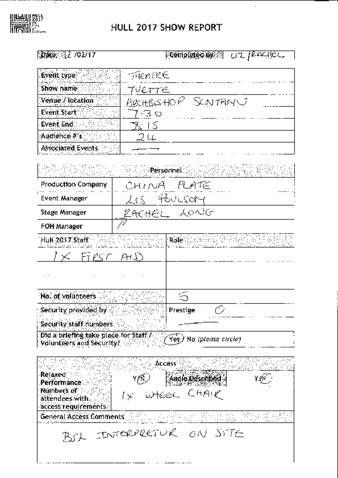 HULL 2017 SHOW REPORT
Date: /02/17 Completed by: LIZ / RACHEL
Event type THEATRE
Show name YVETTE
Venue / location ARCHBISHOP SENTAMU
Event Start 7-30
Event End 8.15
Audience #'s 24
Associated Events —
Personnel
Production Company CHINA PLATE
Event Manager LIS POULSOM
Stage Manager RACHEL LONG
FOH Manager //
Hull 2017 Staff Role
1 X FIRST AID
No. of volunteers 5
Security provided by Prestige
Security staff numbers
Did a briefing take place for Staff / Volunteers and Security? Yes / No (please circle)
Access
Relaxed Performance Y/N Audio Described Y/N
Numbers of attendees with access requirements 1 x WHEEL CHAIR
General Access Comments
BSL INTERPRETUR ON SITE